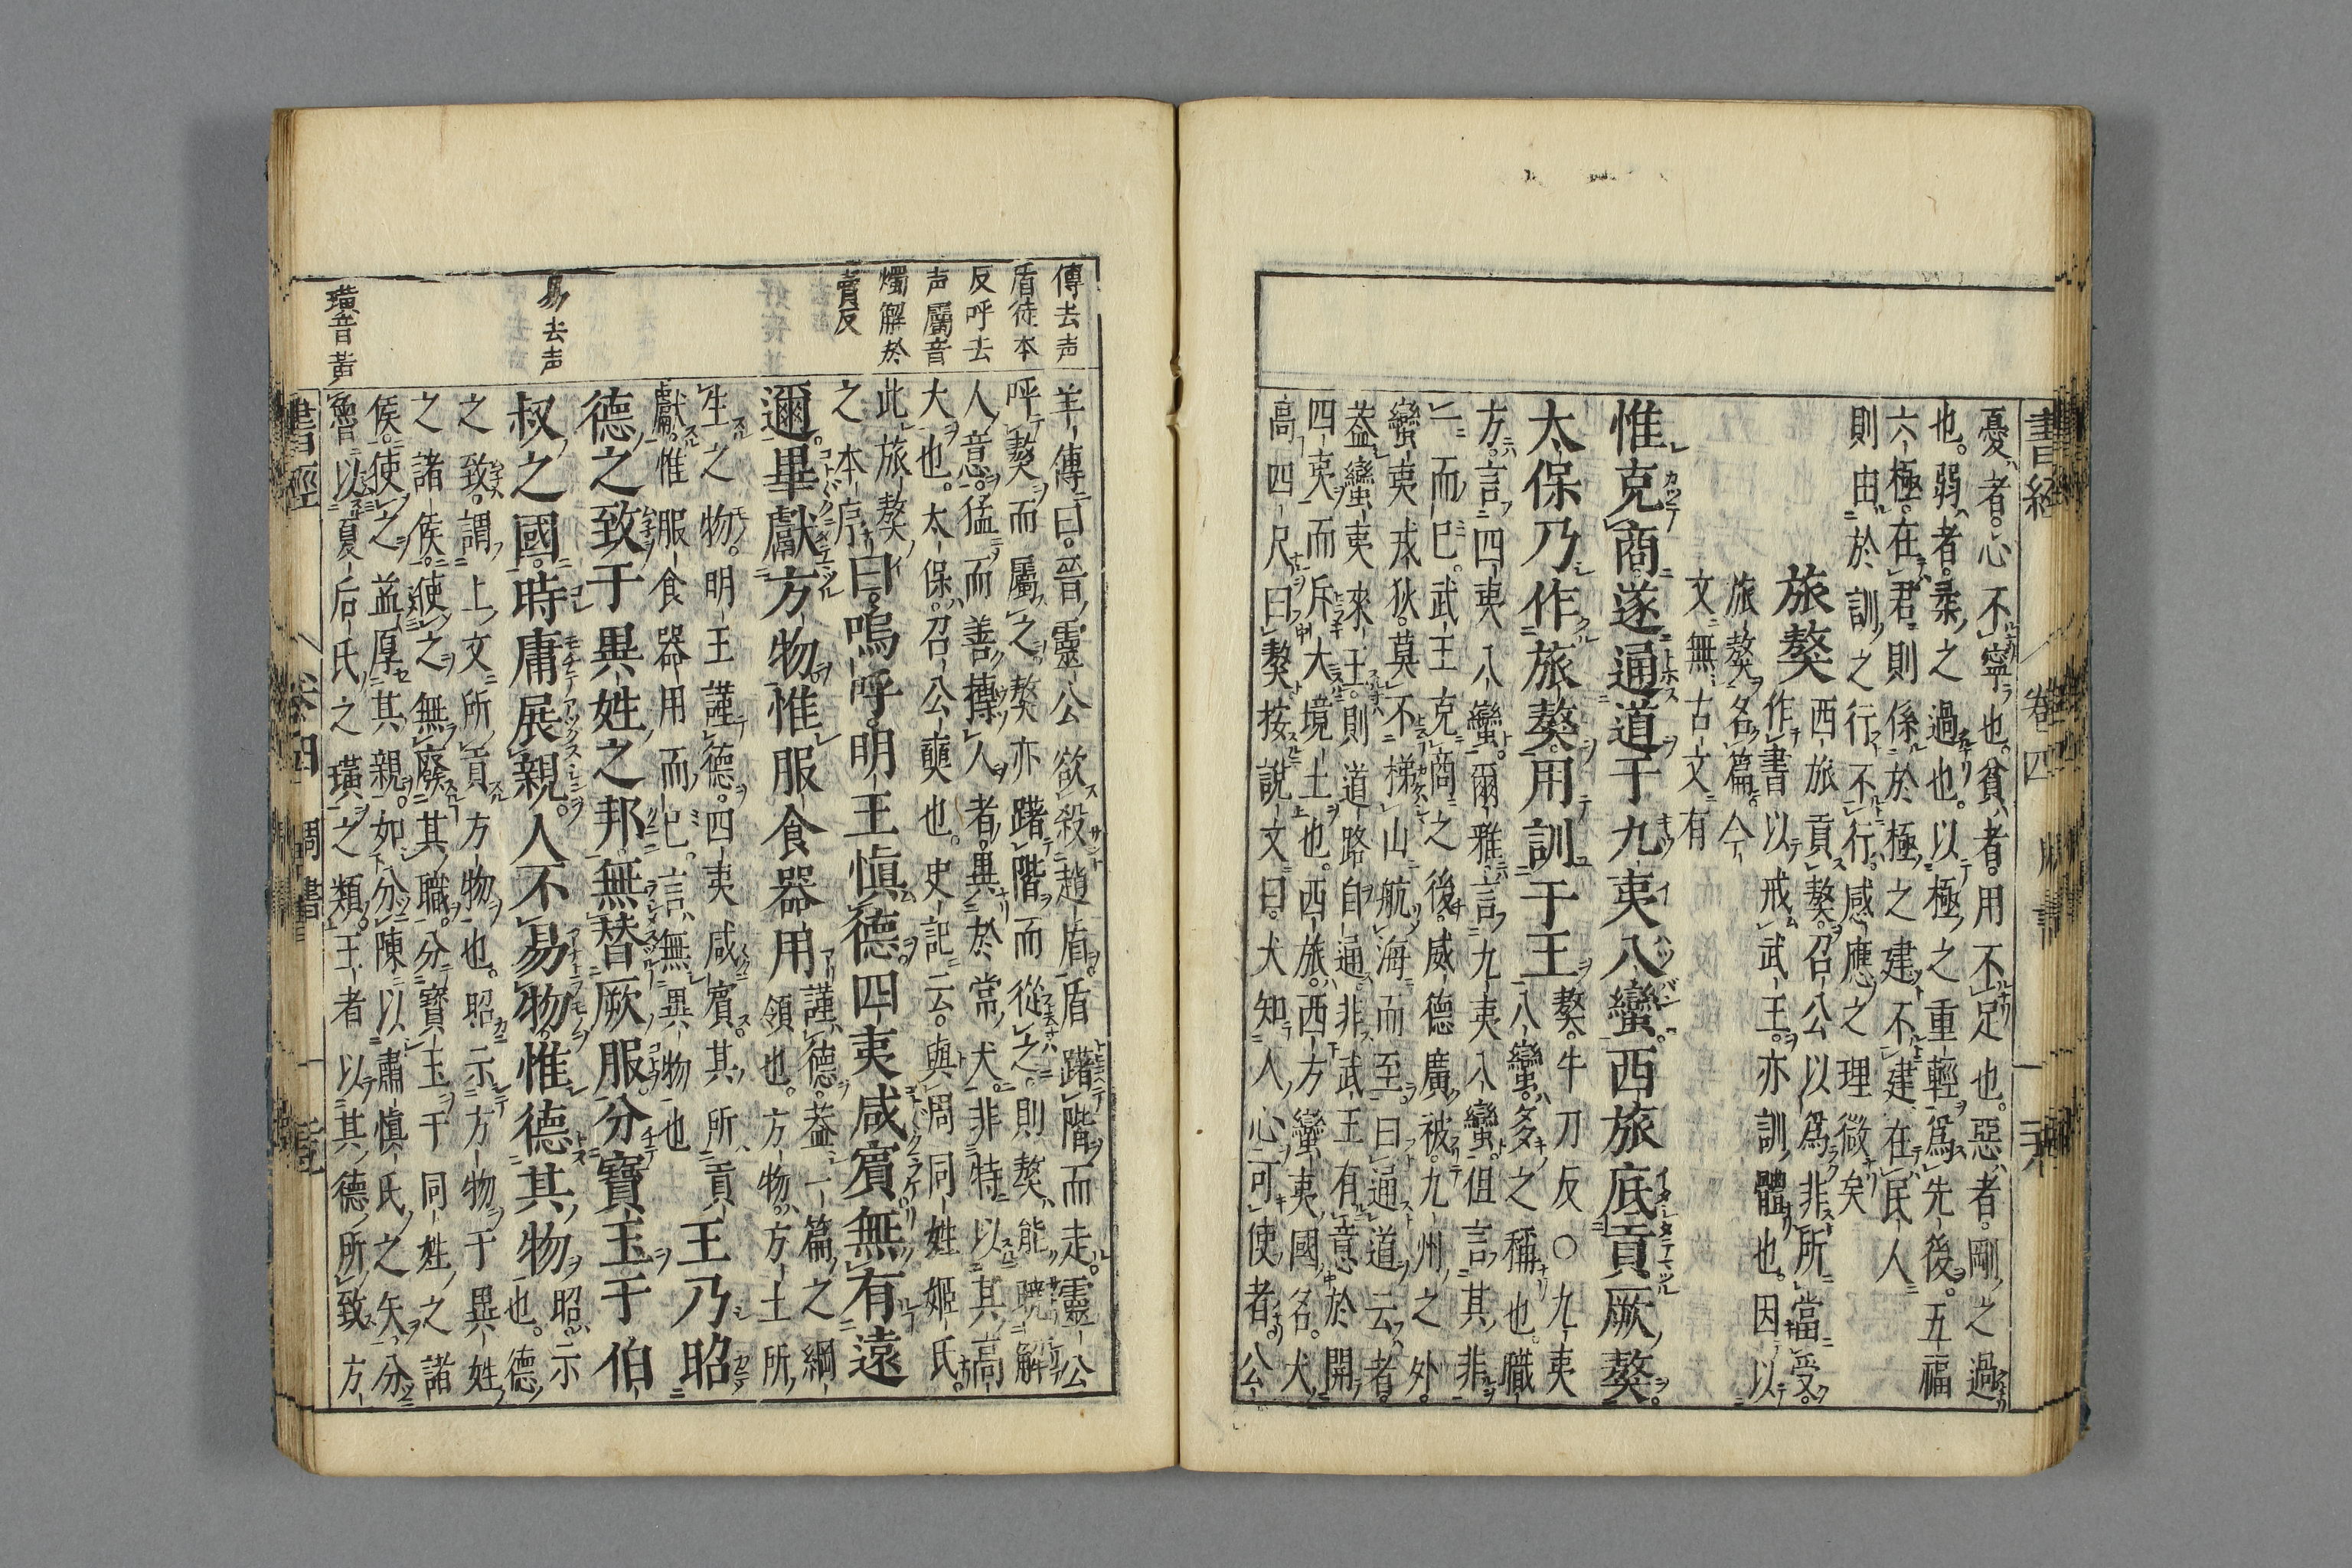 書經 卷四 周書
憂者。心不寧也。貧者。用不足也。惡者。剛之過
也。弱者。柔之過也。以極之重輕爲先後。五福
六極。在君則係於極之建不建。在民人
則由於訓之行不行。感應之理微矣
旅獒 西旅貢獒。召公以爲非所當受。
作書以戒武王。亦訓體也。因以
旅獒名篇。今
文無古文有
惟克商。遂通道于九夷八蠻。西旅底貢厥獒。
太保乃作旅獒。用訓于王 獒。牛刀反○九夷
八蠻。多之稱也。職
方。言四夷八蠻。爾雅。言九夷八蠻。但言其非
一而已。武王克商之後。威德廣被九州之外。
蠻夷戎狄。莫不梯山航海而至。曰通道云者。
蓋蠻夷來王。則道路自通。非武王有意於開
四夷而斥大境土也。西旅。西方蠻夷國名。犬
高四尺曰獒。按說文曰。犬知人心可使者。公
傳去声
盾徒本
反呼去
声屬音
燭解於
賣反
易去声
璜音黃
羊傳曰。晉靈公欲殺趙盾。盾躇階而走。靈公
呼獒而屬之。獒亦躇階而從之。則獒能曉解
人意。猛而善搏人者。異於常犬。非特以其高
大也。太保。召公奭也。史記云。與周同姓姬氏。
此旅獒
之本序 曰。嗚呼。明王愼德。四夷咸賓。無有遠
邇。畢獻方物。惟服食器用 謹德。蓋一篇之綱
領也。方物。方土所
生之物。明王謹德。四夷咸賓。其所貢
獻。惟服食器用而已。言無異物也 王乃昭
德之致于異姓之邦。無替厥服。分寶玉于伯
叔之國。時庸展親。人不易物。惟德其物 昭。示
也。德
之致。謂上文所貢方物也。昭示方物于異姓
之諸侯。使之無廢其職。分寶玉于同姓之諸
侯。使之益厚其親。如分陳以肅愼氏之矢。分
魯以夏后氏之璜之類。王者以其德所致方
書經 卷四 周書